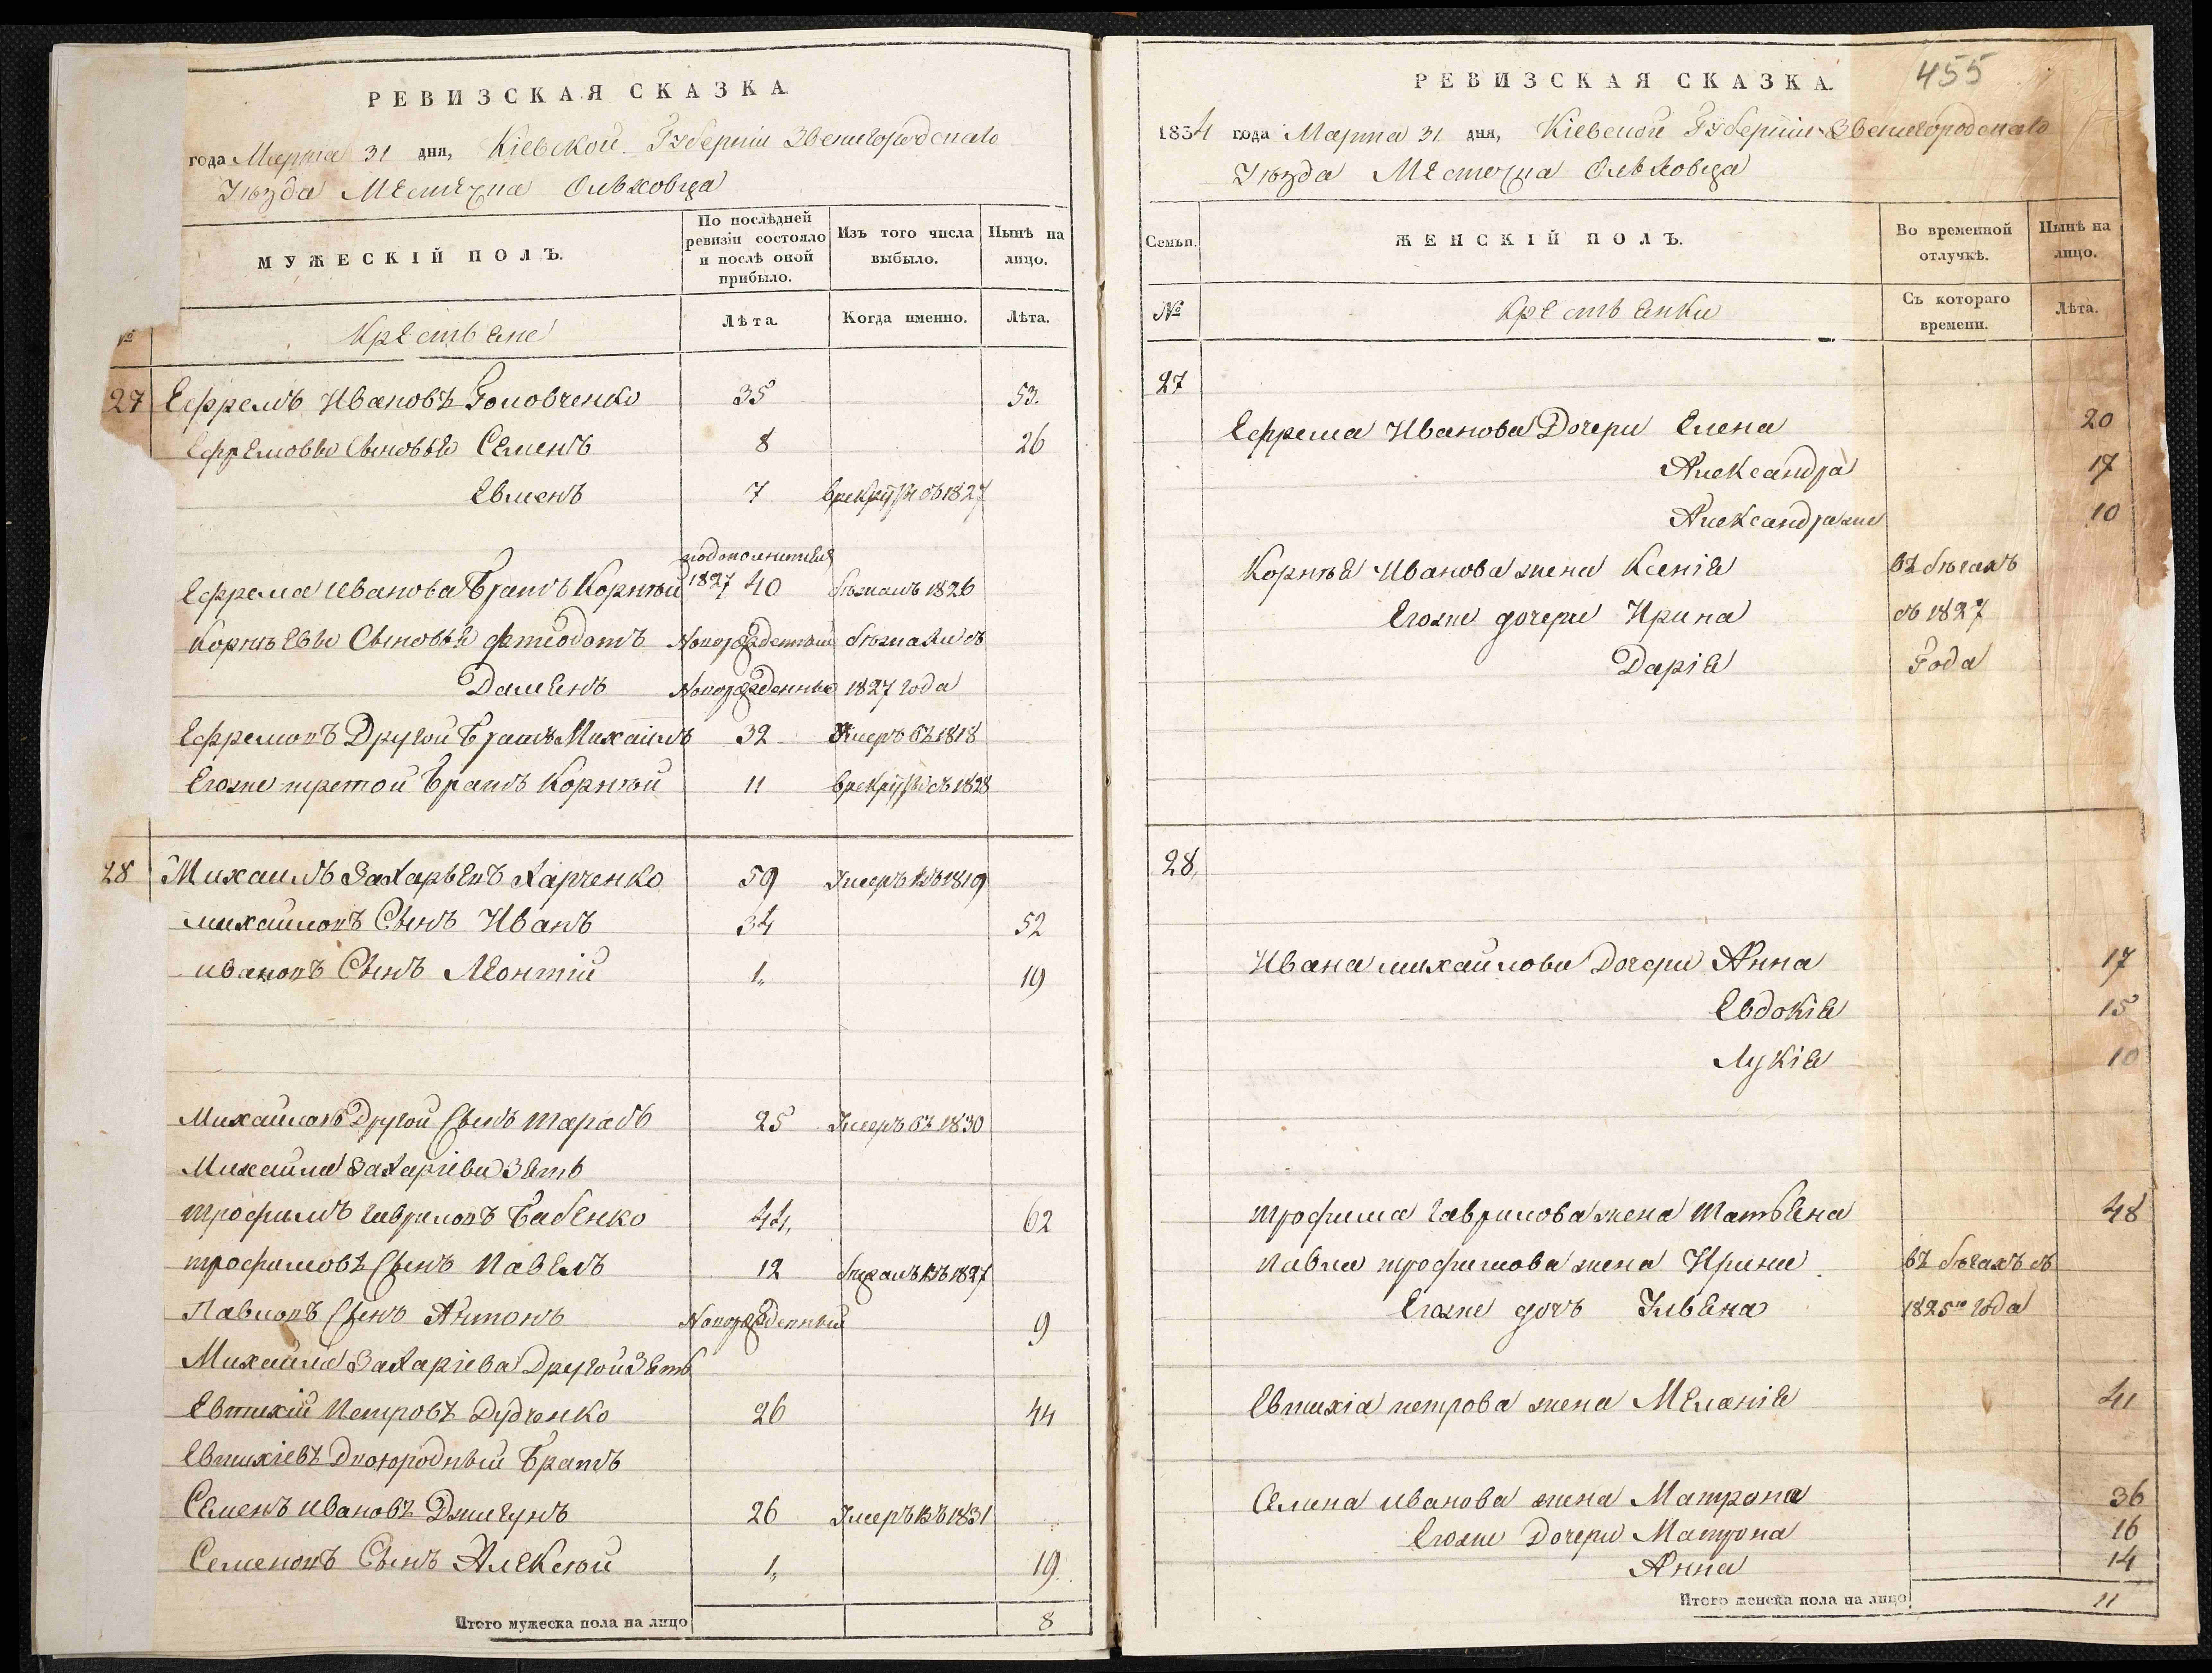 РЕВИЗСКАЯ СКАЗКА.
года Марта 31 дня, Кіевской Губерніи Звенигородскаго
Уѣзда Местечка Ольховца
МУЖЕСКІЙ ПОЛЪ.
По послѣдней ревизіи состояло и послѣ оной прибыло.
Изъ того числа выбыло.
Нынѣ на лицо.
№
Крестьяне
Лѣта.
Когда именно.
Лѣта.
27 Ефремъ Ивановъ Головченко 35 53.
Ефремовы Сыновья Семенъ 8 26
Евменъ 7 въ 1827
Ефрема Иванова Братъ Корнѣй 1827 40 бѣжалъ 1826
Корнѣевы Сыновья Фтеодотъ Новорожденный бѣжали въ
Дамянъ Новорожденный 1827 года
Ефремовъ Другой Братъ Михаилъ 32 Умеръ въ 1818
Егоже третой Братъ Корнѣй 11 въ 1828
28 Михаилъ Захарьевъ Харченко 59 Умеръ въ 1819
Михайловъ Сынъ Иванъ 34 52
Ивановъ Сынъ Леонтій 1„ 19
Михайловъ Другой Сынъ Тарасъ 25 Умеръ въ 1830
Михайла Захаріева Зять
Трофимъ Гавриловъ Бабенко 44, 62
Трофимовъ Сынъ Павелъ 12 бѣжалъ въ 1827
Павловъ Сынъ Антонъ Новорожденный 9
Михайла Захаріева Другой Зять
Евтихій Петровъ Дудченко 26 44
Евтихіевъ Двоюродный Братъ
Семенъ Ивановъ Джигунъ 26 Умеръ въ 1831
Семеновъ Сынъ Алексѣй 1„ 19.
Итого мужеска пола на лицо 8
455
РЕВИЗСКАЯ СКАЗКА.
1834 года Марта 31 дня, Кіевской Губерніи Звенигородскаго
Уѣзда Местечка Ольховца
Семьи.
ЖЕНСКІЙ ПОЛЪ.
Во временной отлучкѣ.
Нынѣ на лицо.
№
Крестьянки
Съ котораго времени.
Лѣта.
27
Ефрема Иванова Дочери Елена 20
Александра 17
Александра же 10
Корнѣя Иванова жена Ксенія въ бѣгахъ
Егоже дочери Ирина съ 1827
Дарія Года
28,
Ивана Михайлова Дочери Анна 17
Евдокія 15
Лукія 10
Трофима Гаврилова жена Татьяна 48
Павла Трофимова жена Ирина въ бѣгахъ съ
Егоже дочь Ульяна 1825го года
Евтихіа Петрова жена Меланія 41
Семена Иванова жена Матрона 36
Егоже Дочери Матрона 16
Анна 14
Итого женска пола на лицо. 11